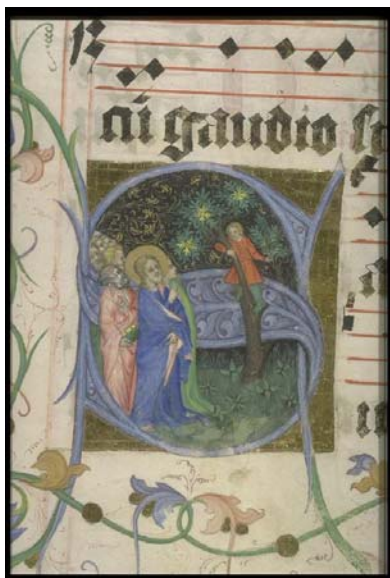 cū gaudio